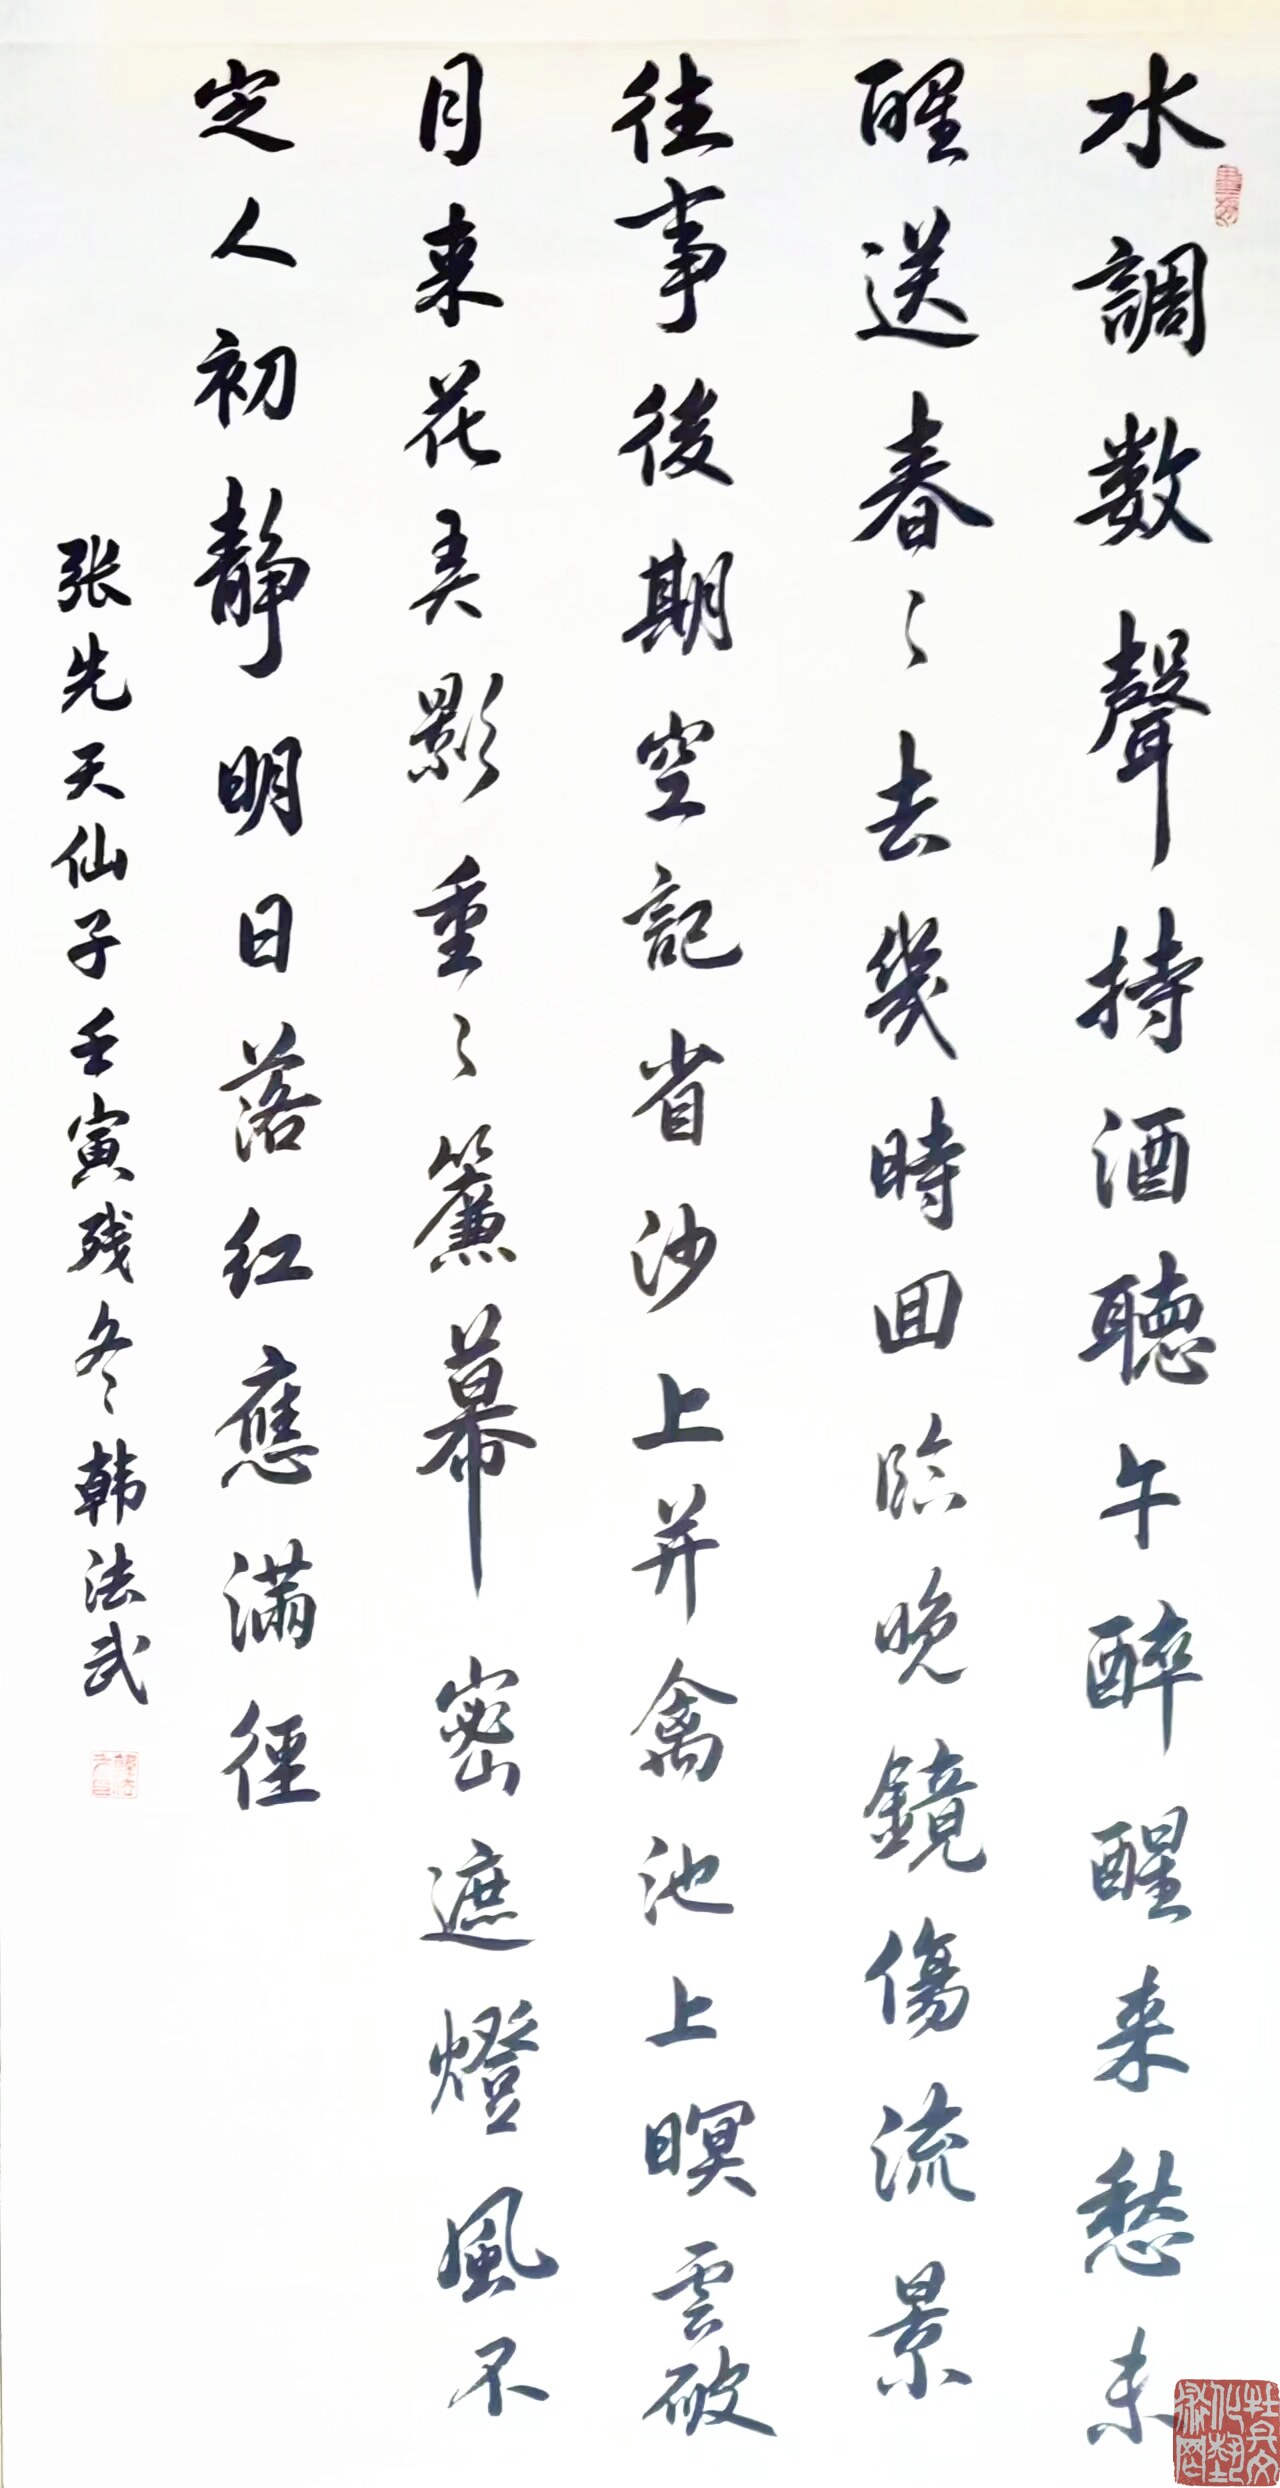 水調数聲持酒聽午醉醒来愁未
醒送春〻去幾時囬臨晚鏡傷流景
往事後期空記省沙上并禽池上暝雲破
月来花弄影重〻簾幕密遮燈風不
定人初静明日落红應满徑
张先天仙子壬寅残冬韩法武
牡丹文化艺术网